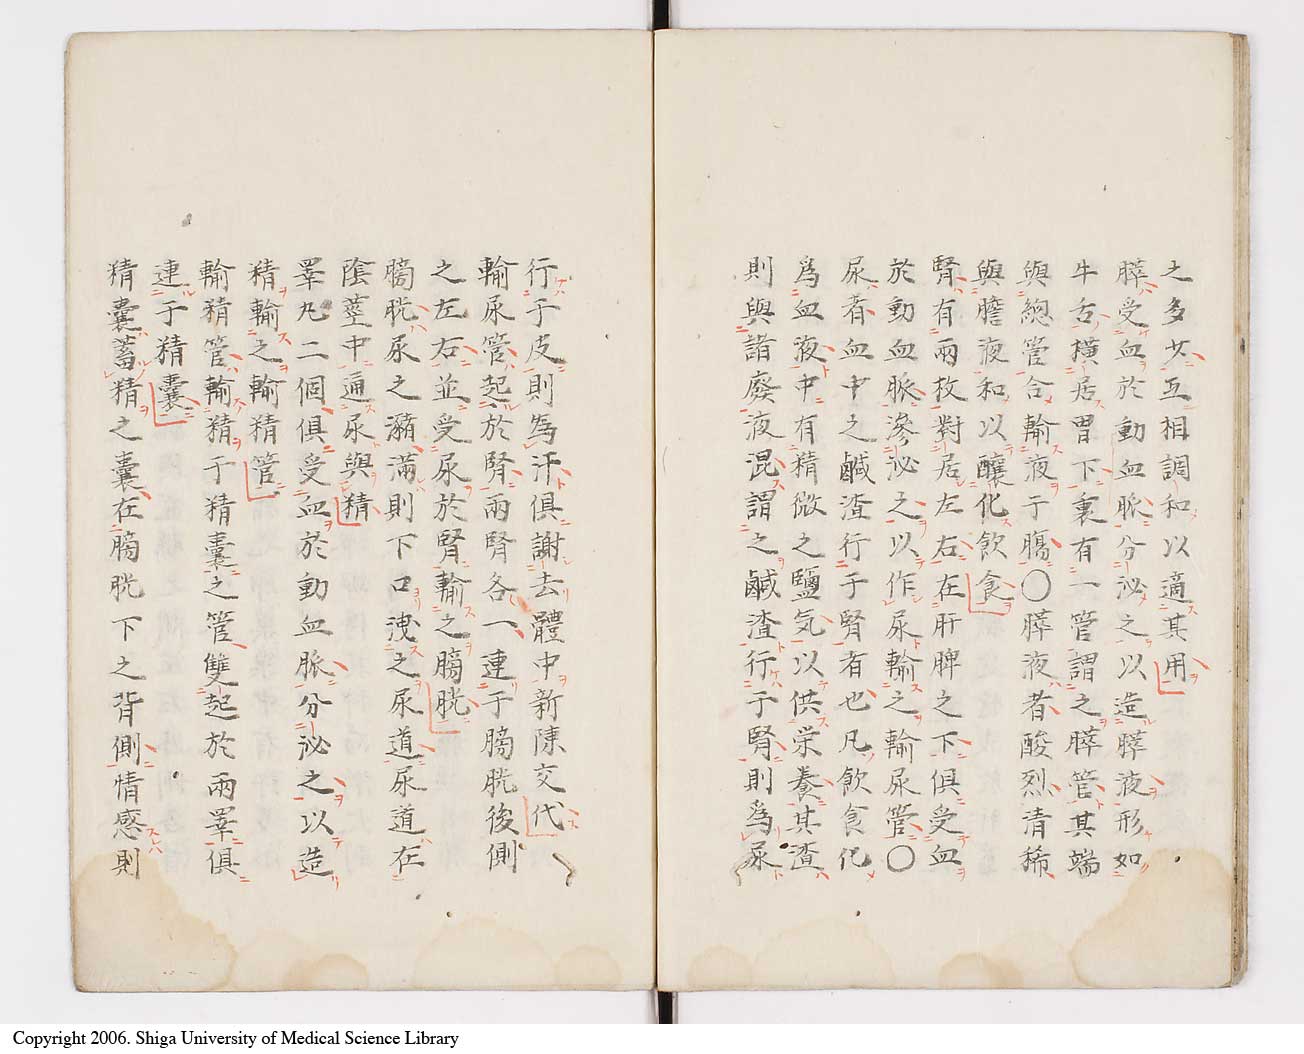 之多少互相調和以適其用
膵受血於動血脈分泌之以造膵液形如
牛舌横居胃下裏有一管謂之膵管其端
與總管合輸液于膓〇膵液者酸烈清稀
與膽液和以釀化飲食
腎有兩枚對居左右在肝脾之下俱受血
於動血脈滲泌之以作尿輸之輸尿管〇
尿者血中之鹹渣行于腎者也凡飲食化
爲血液中有精微之鹽気以供栄養其渣
則與諸廢液混謂之鹹渣行于腎則爲尿
行于皮則為汗俱謝去體中新陳交代
輸尿管起於腎兩腎各一連于膀胱後側
之左右並受尿於腎輸之膀胱
膀胱尿之瀦滿則下口洩之尿道尿道在
陰莖中通尿與精
睪丸二個俱受血於動血脈分泌之以造
精輸之輸精管
輸精管輸精于精囊之管雙起於兩睪俱
連于精囊
精囊蓄精之囊在膀胱下之背側情感則
Copyright 2006. Shiga University of Medical Science Library